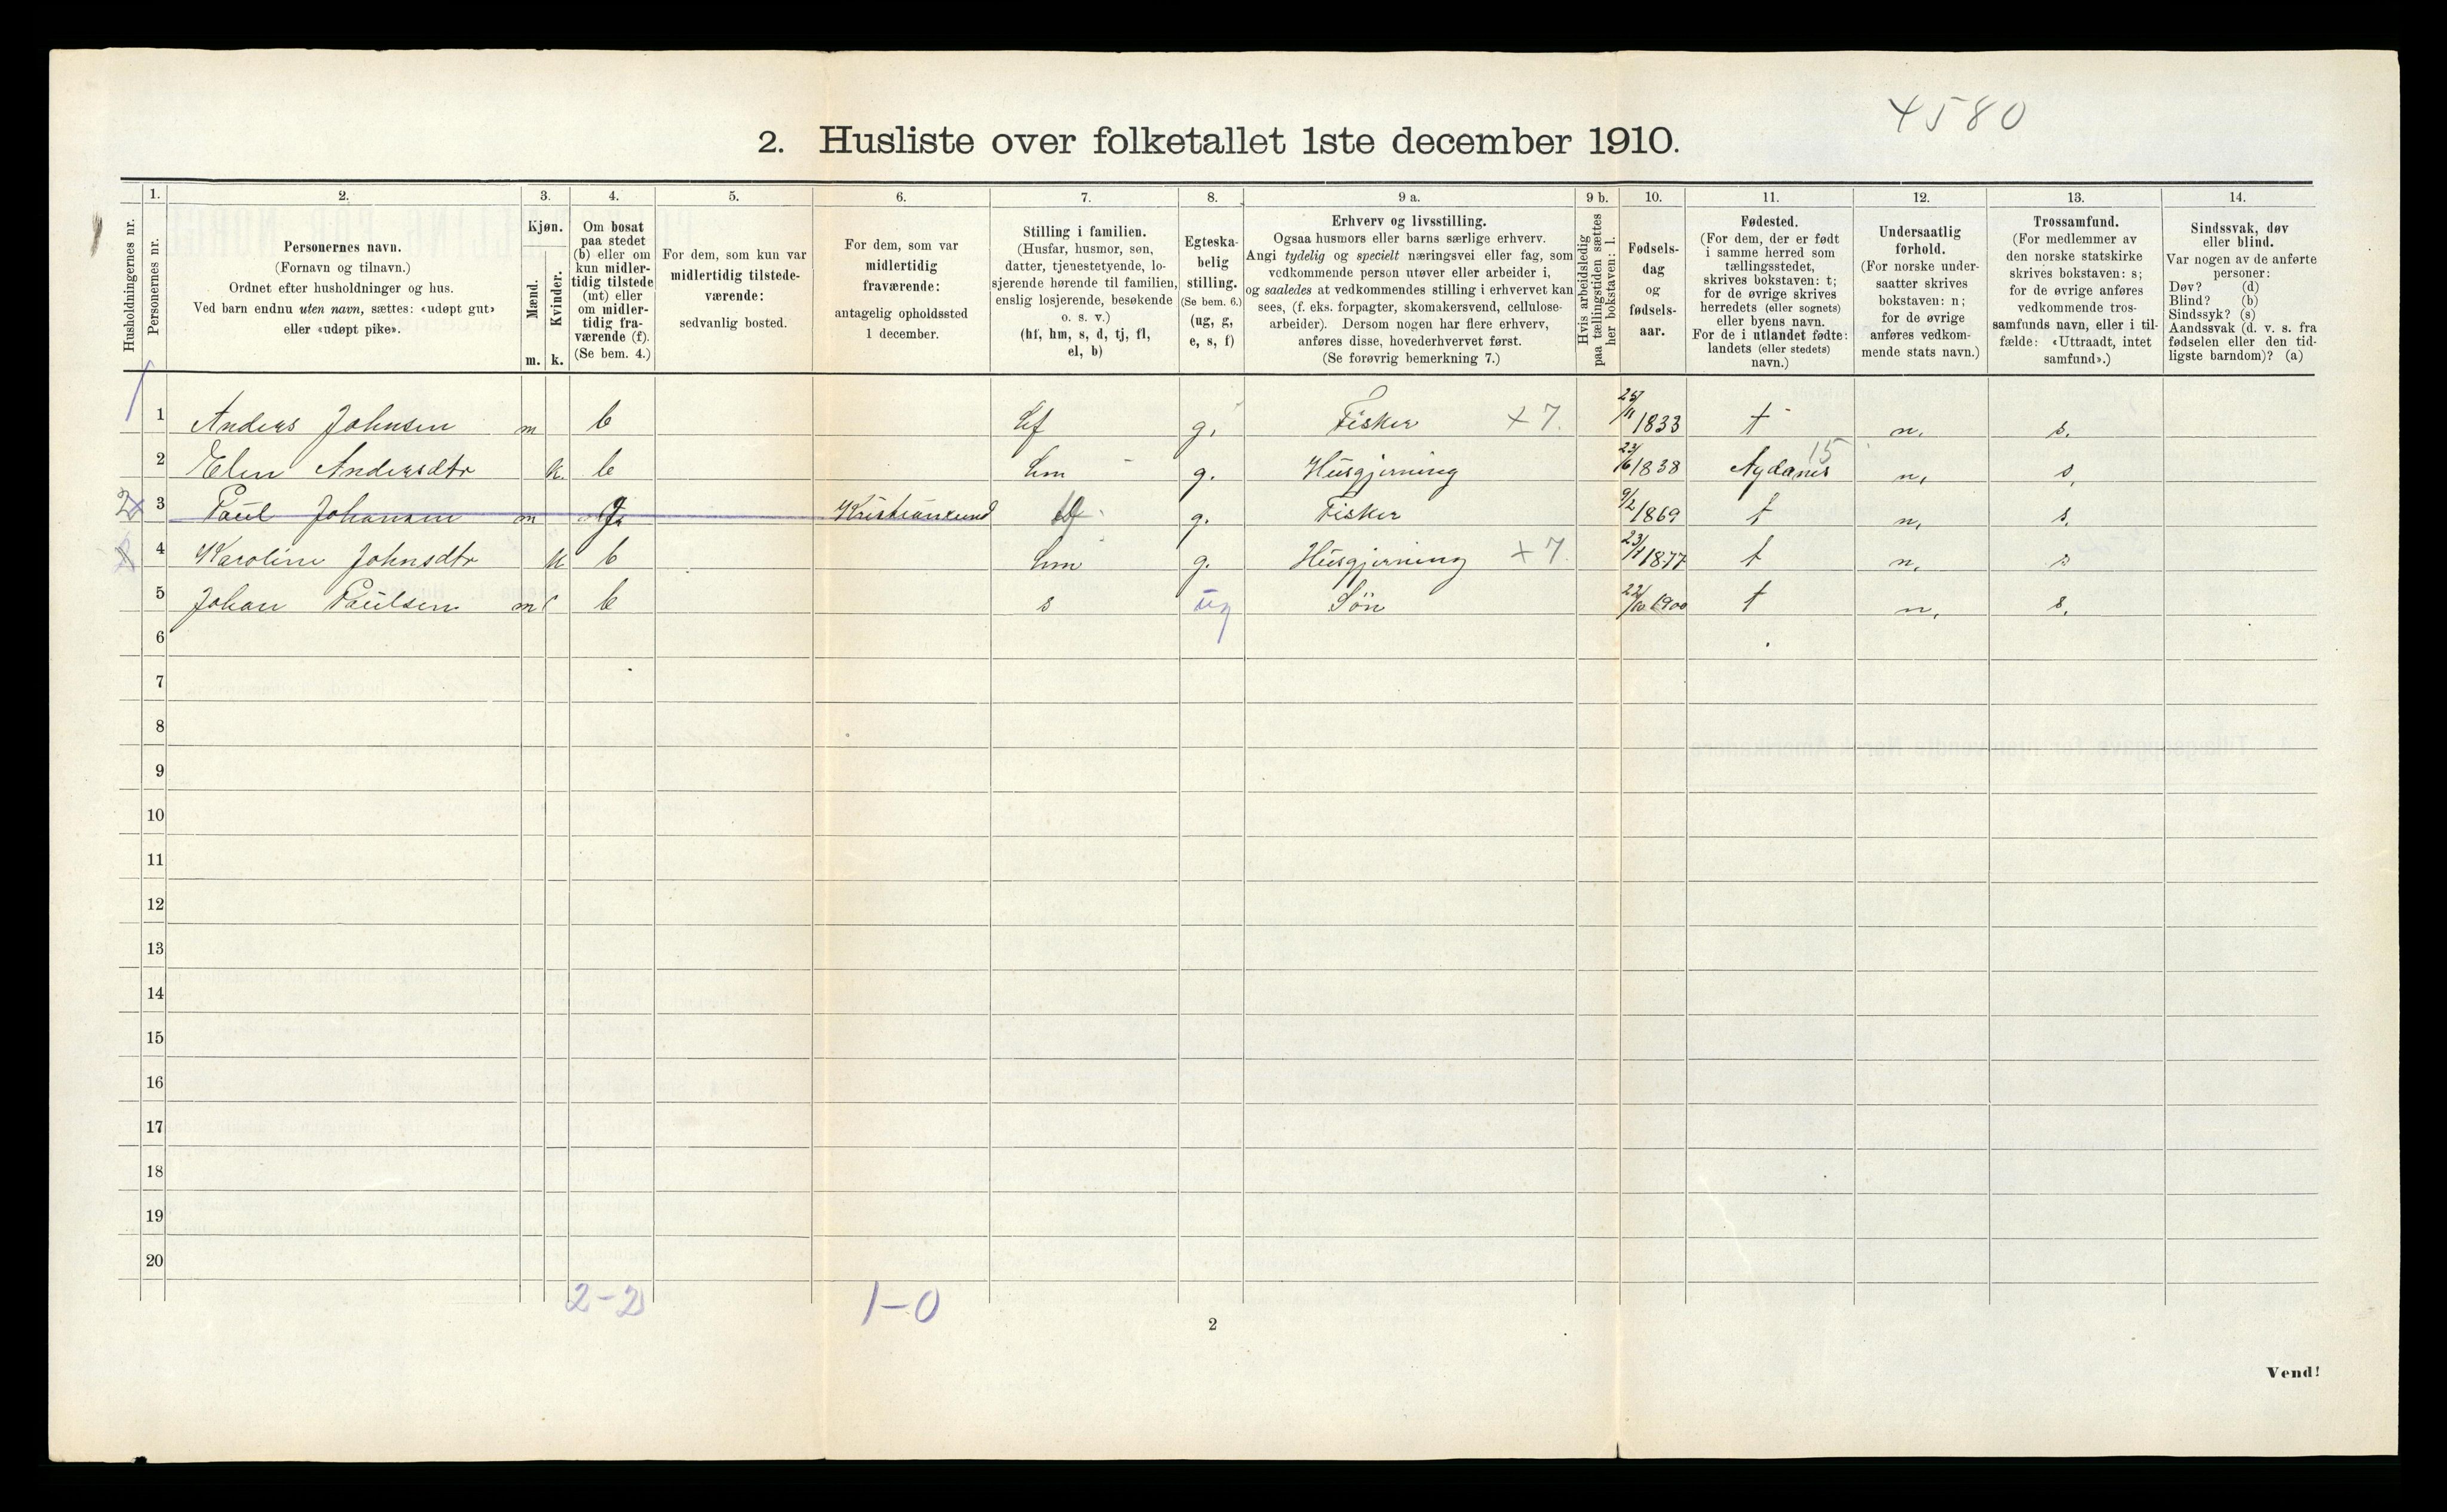 4580
2. Husliste over folketallet 1ste december 1910.
Husholdningernes nr.
1.
Personernes nr.
2.
Personernes navn.
(Fornavn og tilnavn.)
Ordnet efter husholdninger og hus.
Ved barn endnu uten navn, sættes: «udøpt gut»
eller «udøpt pike».
3.
Kjøn.
Mænd.
Kvinder.
m. k.
4.
Om bosat
paa stedet
(b) eller om
kun midler-
tidig tilstede
(mt) eller
om midler-
tidig fra-
værende (f).
(Se bem. 4.)
5.
For dem, som kun var
midlertidig tilstede-
værende:
sedvanlig bosted.
6.
For dem, som var
midlertidig
fraværende:
antagelig opholdssted
1 december.
7.
Stilling i familien.
(Husfar, husmor, søn,
datter, tjenestetyende, lo-
sjerende hørende til familien,
enslig losjerende, besøkende
o. s. v.)
(hf, hm, s, d, tj, fl,
el, b)
8.
Egteska-
belig
stilling.
(Se bem. 6.)
(ug, g,
e, s, f)
9 a.
Erhverv og livsstilling.
Ogsaa husmors eller barns særlige erhverv.
Angi tydelig og specielt næringsvei eller fag, som
vedkommende person utøver eller arbeider i,
og saaledes at vedkommendes stilling i erhvervet kan
sees, (f. eks. forpagter, skomakersvend, cellulose-
arbeider). Dersom nogen har flere erhverv,
anføres disse, hovederhvervet først.
(Se forøvrig bemerkning 7.)
9 b.
Hvis arbeidsledig
paa tællingstiden sættes
her bokstaven: l.
10.
Fødsels-
dag
og
fødsels-
aar.
11.
Fødested.
(For dem, der er født
i samme herred som
tællingsstedet,
skrives bokstaven: t;
for de øvrige skrives
herredets (eller sognets)
eller byens navn.
For de i utlandet fødte:
landets (eller stedets)
navn.)
12.
Undersaatlig
forhold.
(For norske under-
saatter skrives
bokstaven: n;
for de øvrige
anføres vedkom-
mende stats navn.)
13.
Trossamfund.
(For medlemmer av
den norske statskirke
skrives bokstaven: s;
for de øvrige anføres
vedkommende tros-
samfunds navn, eller i til-
fælde: «Uttraadt, intet
samfund».)
14.
Sindssvak, døv
eller blind.
Var nogen av de anførte
personer:
Døv? (d)
Blind? (b)
Sindssyk? (s)
Aandssvak (d. v. s. fra
fødselen eller den tid-
ligste barndom)? (a)
1 Anders Johnsen m b hf g. Fisker +7. 25/11 1833 t n. s.
2 Elen Andersdtr k. b hm g. Husgjerning 23/6 1838 Agdanes 15 n, s,
2 3 Paul Johansen m f. Kristiansund g. Fisker 9/2 1869 t n, s.
4 Karoline Johnsdtr k b hm g. Husgjerning +7. 23/1 1877 t n, s
5 Johan Paulsen m b s ug Søn 22/10 1900 t n, s.
6
7
8
9
10
11
12
13
14
15
16
17
18
19
20
2-2
1-0
2
Vend!